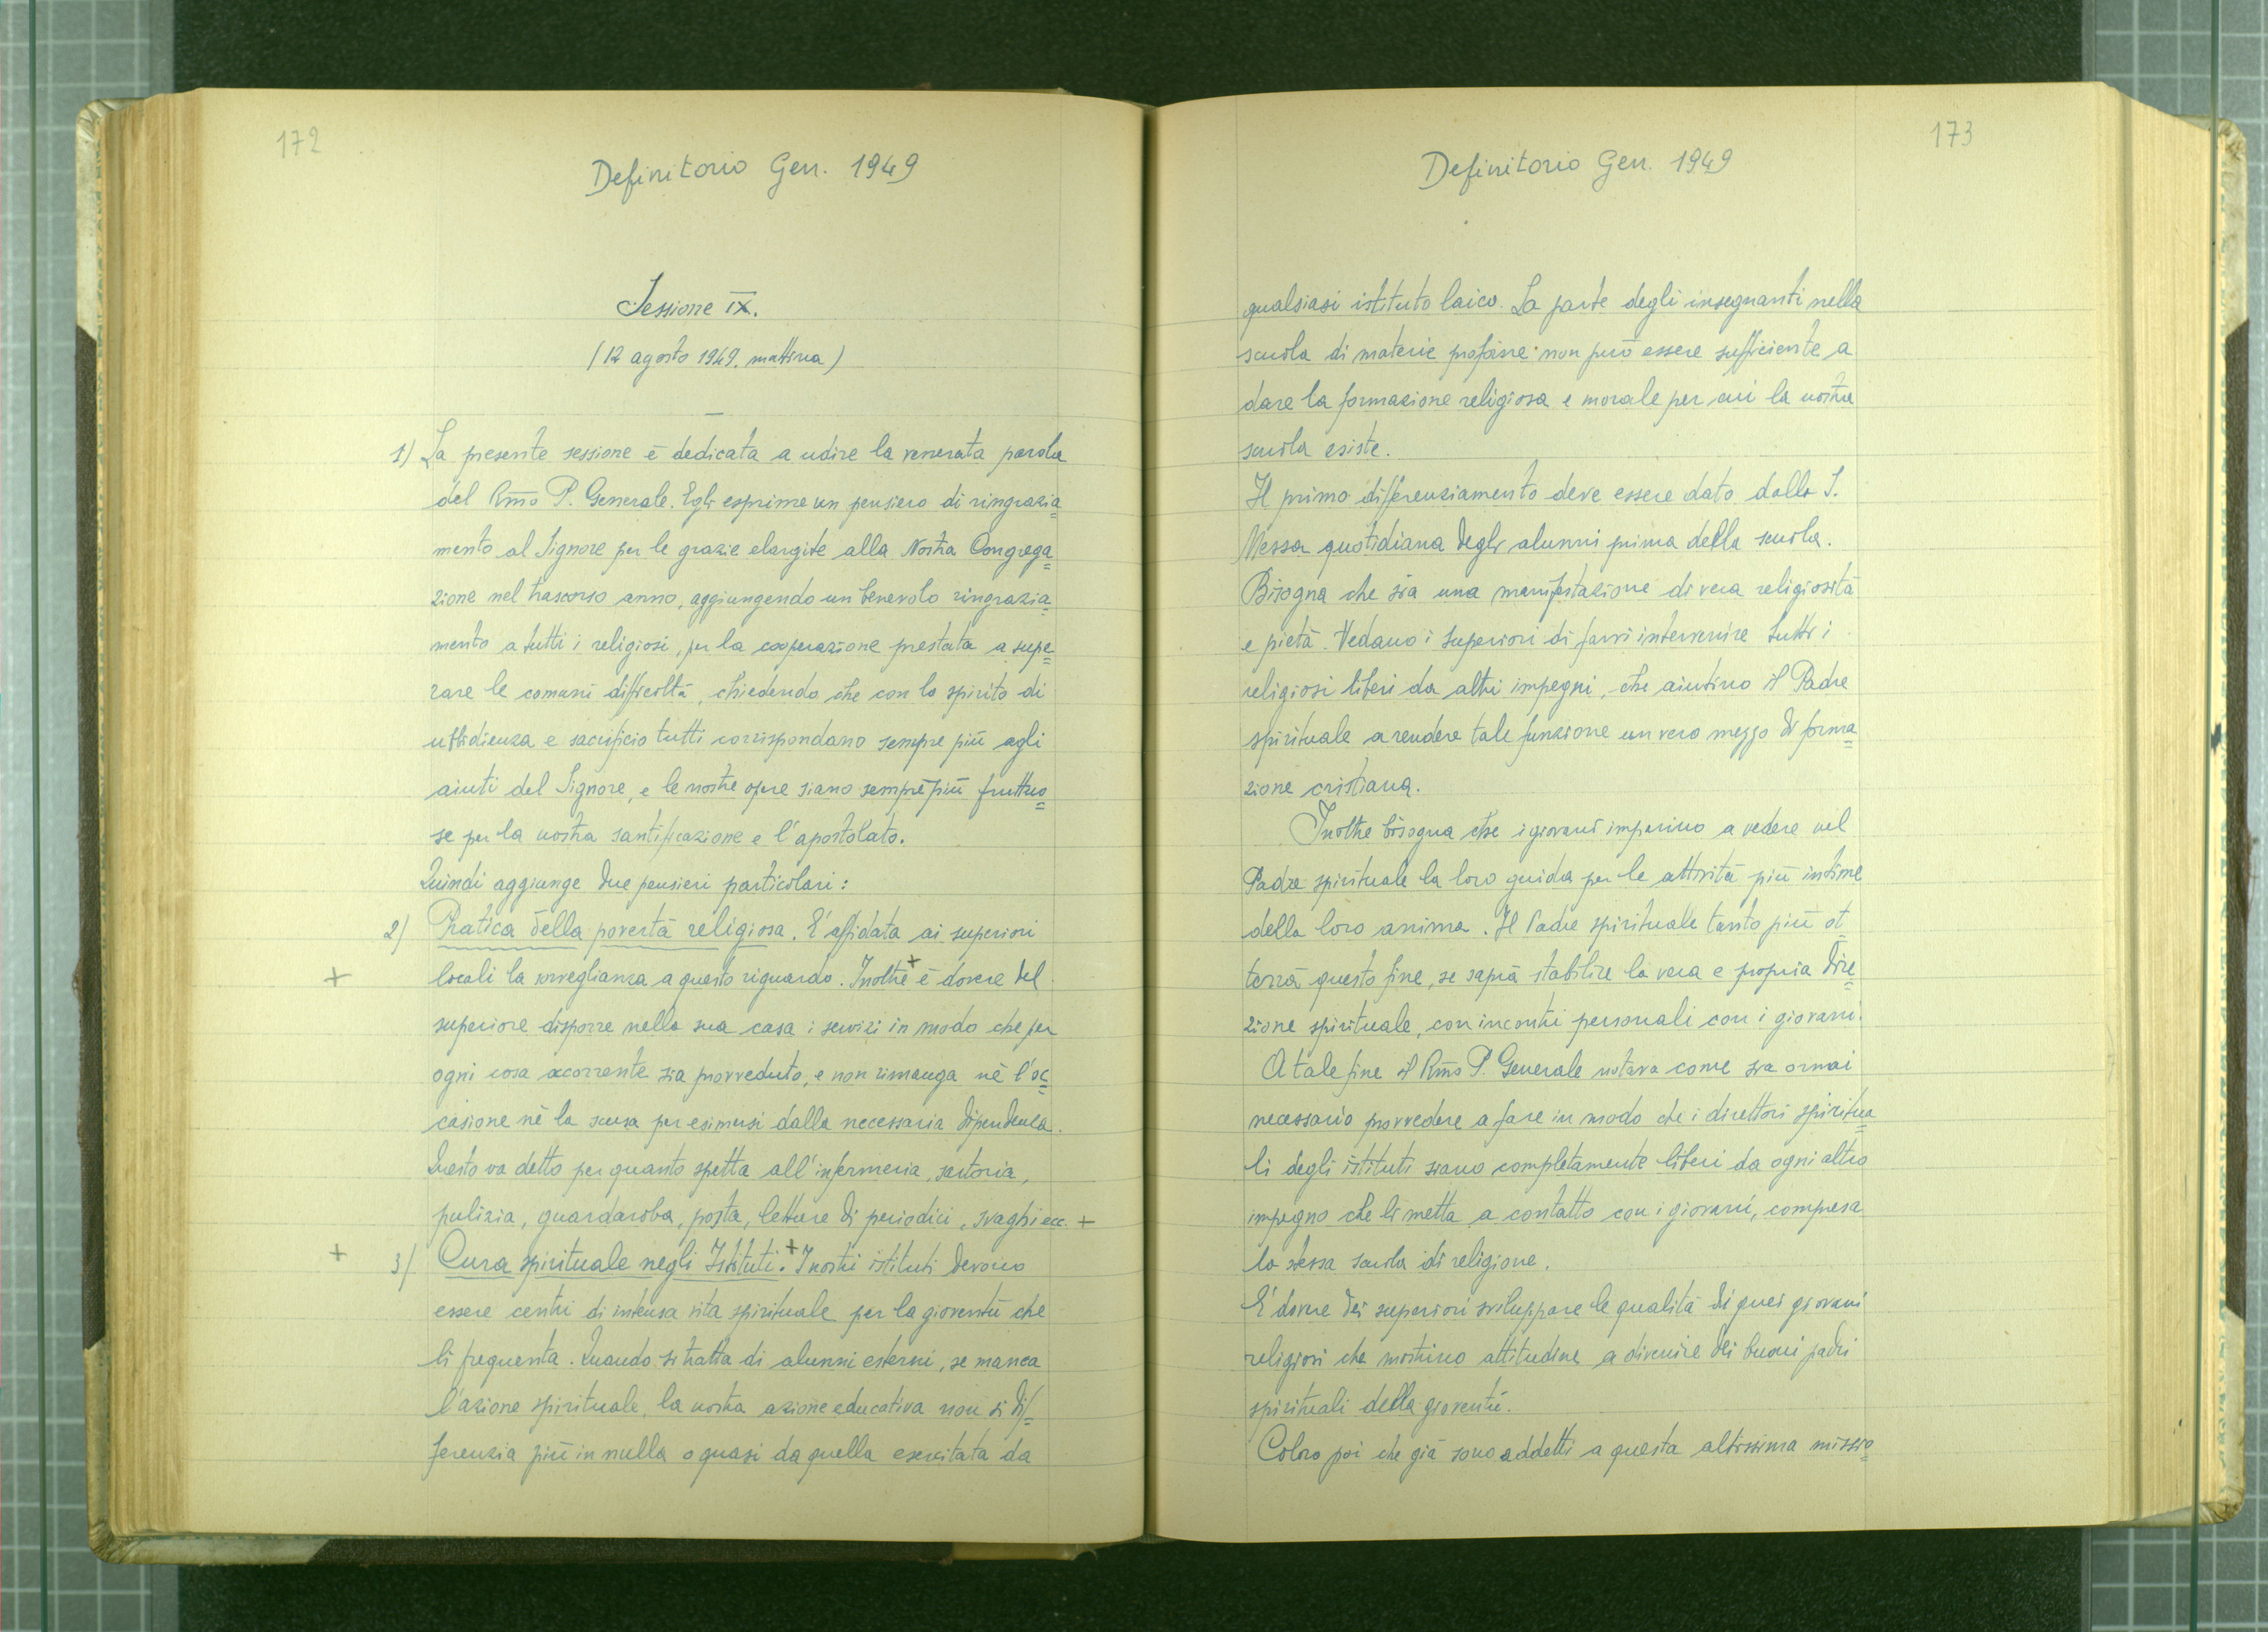 172
Definitorio Gen. 1949
Sessione IX.
(12 agosto 1949. mattina)
1) La presente sessione è dedicata a udire la venerata parola
del Rm̄o P. Generale. Egli esprime un pensiero di ringrazia=
mento al Signore per le grazie elargite alla Nostra Congrega=
zione nel trascorso anno, aggiungendo un benevolo ringrazia=
mento a tutti i religiosi, per la cooperazione prestata a supe=
rare le comuni difficoltà, chiedendo che con lo spirito di
ubbidienza e sacrificio tutti corrispondano sempre più agli
aiuti del Signore, e le nostre opere siano sempre più fruttuo=
se per la nostra santificazione e l'apostolato.
Quindi aggiunge due pensieri particolari:
2) Pratica della povertà religiosa. E' affidata ai superiori
+ locali la sorveglianza a questo riguardo. Inoltre + è dovere del
superiore disporre nella sua casa i servizi in modo che per
ogni cosa occorrente sia provveduto, e non rimanga nè l'oc=
casione nè la scusa per esimersi dalla necessaria dipendenza.
Questo va detto per quanto spetta all'infermeria, sartoria,
pulizia, guardaroba, posta, letture di periodici, svaghi ecc. +
+ 3) Cura spirituale negli Istituti. + I nostri istituti devono
essere centri di intensa vita spirituale per la gioventù che
li frequenta. Quando si tratta di alunni esterni, se manca
l'azione spirituale, la nostra azione educativa non si dif=
ferenzia più in nulla o quasi da quella esercitata da
173
Definitorio Gen. 1949
qualsiasi istituto laico. La parte degli insegnanti nella
scuola di materie profane non può essere sufficiente a
dare la formazione religiosa e morale per cui la nostra
scuola esiste.
Il primo differenziamento deve essere dato dalla S.
Messa quotidiana degli alunni prima della scuola.
Bisogna che sia una manifestazione di vera religiosità
e pietà. Vedano i superiori di farvi intervenire tutti i
religiosi liberi da altri impegni, che aiutino il Padre
spirituale a rendere tale funzione un vero mezzo di forma=
zione cristiana.
Inoltre bisogna che i giovani imparino a vedere nel
Padre spirituale la loro guida per le attività più intime
della loro anima. Il Padre spirituale tanto più ot
terrà questo fine, se saprà stabilire la vera e propria dire=
zione spirituale, con incontri personali con i giovani.
A tale fine il Rm̄o P. Generale notava come sia ormai
necessario provvedere a fare in modo che i direttori spiritua=
li degli istituti siano completamente liberi da ogni altro
impegno che li metta a contatto con i giovani, compresa
la stessa scuola di religione.
E' dovere dei superiori sviluppare le qualità di quei giovani
religiosi che mostrino attitudine a divenire dei buoni padri
spirituali della gioventù.
Coloro poi che già sono addetti a questa altissima missio=